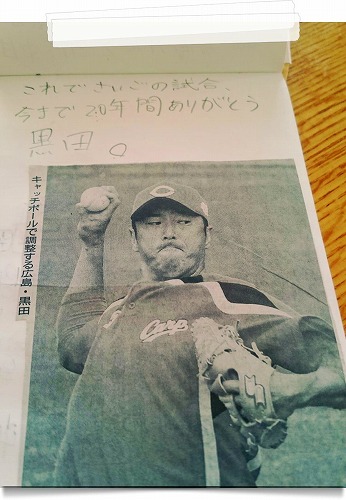 これでさいごの試合、
今まで20年間ありがとう
黒田。
キャッチボールで調整する広島・黒田
C
Carp